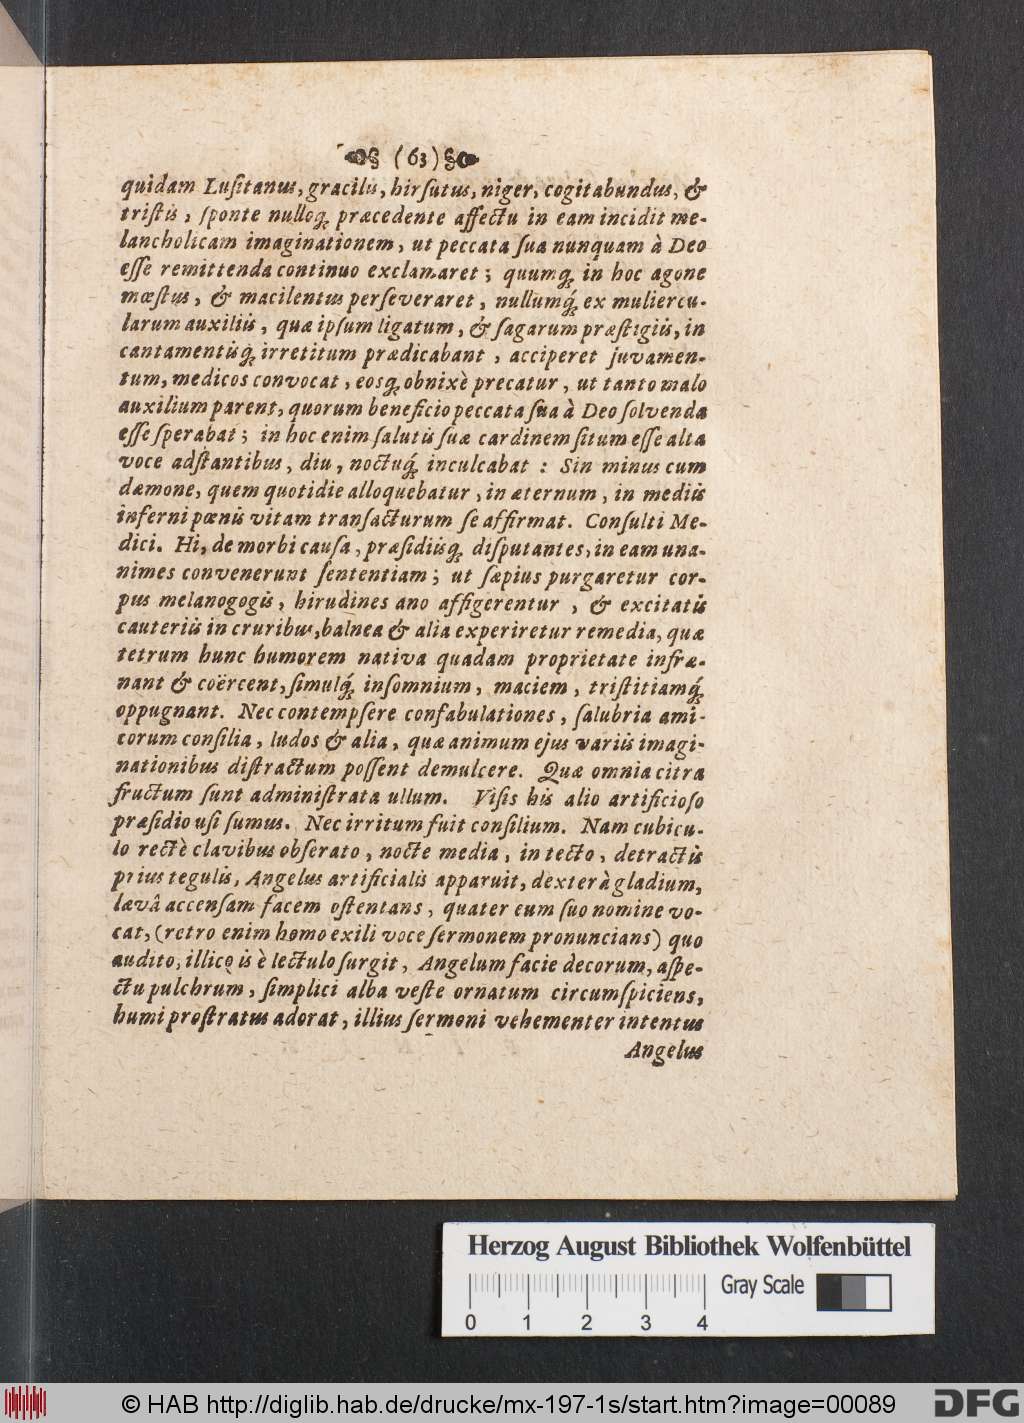 (63)
quidam Luſitanus, gracilis, hirſutus, niger, cogitabundus, &
triſtis, ſponte nulloq́; præcedente affectu in eam incidit me-
lancholicam imaginationem, ut peccata ſua nunquam à Deo
eſſe remittenda continuo exclamaret; quumq́; in hoc agone
mœſtus, & macilentus perſeveraret, nullumq́; ex muliercu-
larum auxiliis, quæ ipſum ligatum, & ſagarum præſtigiis, in
cantamentisq́; irretitum prædicabant, acciperet juvamen-
tum, medicos convocat, eosq́; obnixè precatur, ut tanto malo
auxilium parent, quorum beneficio peccata ſua à Deo ſolvenda
eſſe ſperabat; in hoc enim ſalutis ſuæ cardinem ſitum eſſe alta
voce adſtantibus, diu, noctuq́; inculcabat : Sin minus cum
dæmone, quem quotidie alloquebatur, in æternum, in mediis
inferni pœnis vitam tranſacturum ſe affirmat. Conſulti Me-
dici. Hi, de morbi cauſa, præſidiisq́; diſputantes, in eam una-
nimes convenerunt ſententiam; ut ſæpius purgaretur cor-
pus melanogogis, hirudines ano affigerentur, & excitatis
cauteriis in cruribus, balnea & alia experiretur remedia, quæ
tetrum hunc humorem nativa quadam proprietate infræ-
nant & coërcent, ſimulq́; inſomnium, maciem, triſtitiamq́;
oppugnant. Nec contempſere confabulationes, ſalubria ami-
corum conſilia, ludos & alia, quæ animum ejus variis imagi-
nationibus diſtractum poſſent demulcere. Quæ omnia citra
fructum ſunt adminiſtrata ullum. Viſis his alio artificioſo
præſidio uſi ſumus. Nec irritum fuit conſilium. Nam cubicu-
lo rectè clavibus obſerato, nocte media, in tecto, detractis
prius tegulis, Angelus artificialis apparuit, dexterâ gladium,
lævâ accenſam facem oſtentans, quater eum ſuo nomine vo-
cat, (retro enim homo exili voce ſermonem pronuncians) quo
audito, illico is è lectulo ſurgit, Angelum facie decorum, aſpe-
ctu pulchrum, ſimplici alba veſte ornatum circumſpiciens,
humi proſtratus adorat, illius ſermoni vehementer intentus
Angelus
Herzog August Bibliothek Wolfenbüttel
Gray Scale
0 1 2 3 4
© HAB http://diglib.hab.de/drucke/mx-197-1s/start.htm?image=00089
DFG